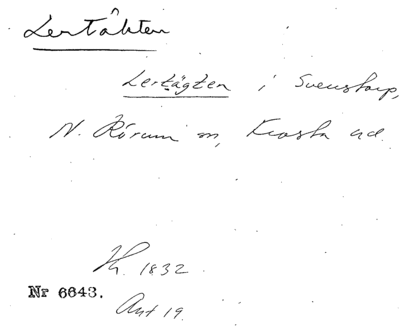 Lertäkten
Lertägten i Svenstorp,
N. Rörum m, Frosta hd.
1832
Nr 6643.
Akt 19